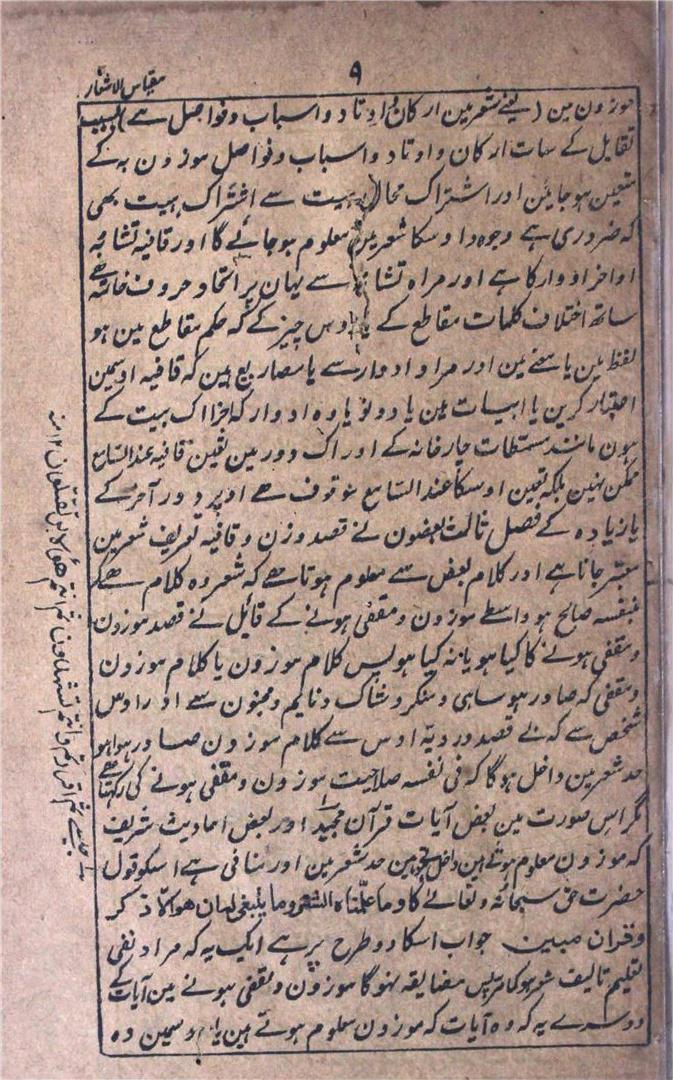 ۹
مقیاس الاشعار
موزون مین (یعنے شعر مین ارکان و اوتاد و اسباب و فواصل سے) بسبب
تقابل کے سات ارکان و اوتاد و اسباب و فواصل موزون بہ کے
متعین ہو جائین اور اشتراک ہیت سے اشتراک ہیت بھی
کہ ضروری ہے وجود اوسکا شعر مین معلوم ہو جائے گا اور قافیہ تشابہ
اواخر ادوار کا ہے اور مراد تشابہ سے یہان پر اتحاد حروف خاتمہ ہے
ساتھ اختلاف کلمات مقاطع کے یا اوس چیز کے کہ حکم مقاطع مین ہو
لفظ مین یا معنے مین اور مراد ادوار سے یا مصاریع ہین کہ قافیہ اوسمین
اعتبار کرین یا ابیات ہین یا دونو یا وہ ادوار کہ اجزا اک بیت کے
ہون مانند مسمطات چار خانہ کے اور اک دور مین تعین قافیہ عند السامع
ممکن نہین بلکہ تعین اوسکا عند السامع موقوف ہے اوپر دور آخر کے
یا زیادہ کے فصل ثالث بعضون نے قصد وزن و قافیہ تعریف شعر مین
معتبر جانا ہے اور کلام بعض سے معلوم ہوتا ہے کہ شعر وہ کلام ہے کہ
بنفسہ صالح ہو واسطے موزون و مقفی ہونے کے قایل نے قصد موزون
و مقفی ہونے کا کیا ہو یا نہ کیا ہو پس کلام موزون یا کلام موزون
و مقفی کہ صادر ہو ساہی و منکر و شاک و نایم و مجنون سے اور اوس
شخص سے کہ بے قصد و رویۃ اوس سے کلام موزون صادر ہوا ہو
حد شعر مین داخل ہوگا کہ فی نفسہ صلاحیت موزون و مقفی ہونے کی رکھتا ہے
مگر اس صورت مین بعض آیات قرآن مجید اور بعض احادیث شریف
کہ موزون معلوم ہوتے ہین داخل ہوتے ہین حد شعر مین اور منافی ہے اسکو قول
حضرت حق سبحانہ و تعالے کا وما علمناہ الشعر وما ینبغی لہ ان ھو الا ذکر
وقران مبین جواب اسکا دو طرح پر ہے ایک یہ کہ مراد نفی
تعلیم تالیف شعر ہو پس مضایقہ نہوگا موزون و مقفی ہونے مین آیات کے
دوسرے یہ کہ وہ آیات کہ موزون معلوم ہوتے ہین یا اوسمین وہ
لہ جیسے ثم اقررتم وانتم تشھدون ثم انتم ھؤلاء تقتلون ۱۲ منہ